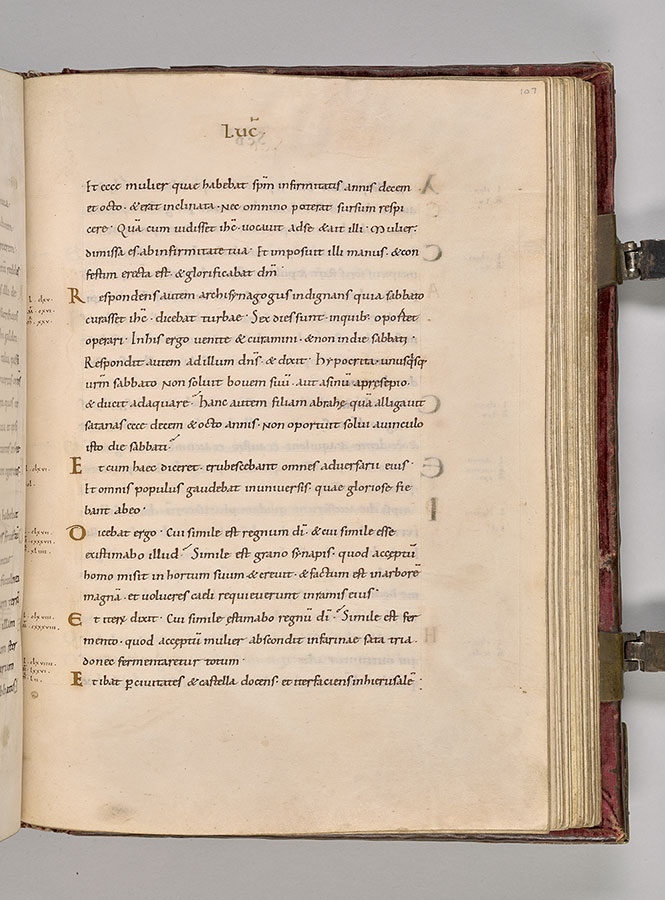 107
Luc̄
Et ecce mulier quae habebat sp̄m infirmitatis annis decem
et octo · & erat inclinata · Nec omnino poterat sursum respi
cere · Quā cum vidisset ihc̄ · vocavit ad se & ait illi · Mulier ·
dimissa es ab infirmitate tua · Et imposuit illi manus · & con
festim erecta est · & glorificabat dm̄ ·
Respondens autem archisynagogus indignans quia sabbato
curasset ihc̄ · dicebat turbae · Sex dies sunt · inquib; oportet
operari · In his ergo venite & curamini · & non in die sabbati ·
Respondit autem ad illum dn̄s · & dixit · Hypocritae · unusq;sq;
urm̄ sabbato non solvit bovem suū · aut asinū a presepio ·
& ducit adaquare · Hanc autem filiam abrahę quā alligavit
satanas ecce decem & octo annis · Non oportuit solvi a vinculo
isto die sabbati ·
Et cum haec diceret · erubescebant omnes adversarii eius ·
Et omnis populus gaudebat in universis · quae gloriose fie
bant ab eo ·
Dicebat ergo · Cui simile est regnum dī · & cui simile esse
existimabo illud · Simile est grano synapis · quod acceptū
homo misit in hortum suum & crevit · & factum est in arborē
magnā · et volucres caeli requieverunt in ramis eius ·
Et iterū dixit · Cui simile estimabo regnū dī · Simile est fer
mento · quod acceptū mulier abscondit in farinae sata tria ·
donec fermentaretur totum ·
Et ibat p̄ civitates & castella docens · et iter faciens in hierusalē ·